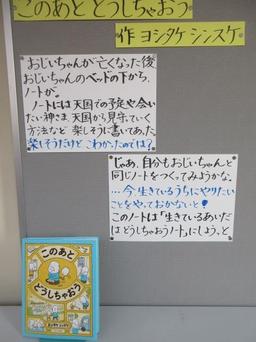 このあと どうしちゃおう。
作 ヨシタケ シンスケ
おじいちゃんが亡くなった後
おじいちゃんのベッドの下から、
ノートが。
ノートには天国での予定や会い
たい神さま、天国から見守っていく
方法など 楽しそうに書いてあった。
楽しそうだけど こわかったのでは？
じゃあ、自分もおじいちゃんと
同じノートをつくってみようかな。
…今、生きているうちにやりたい
ことをやっておかないと!
このノートは「生きているあいだ
はどうしちゃおうノート」にしよう、と
このあと
どうしちゃおう
ヨシタケシンスケ